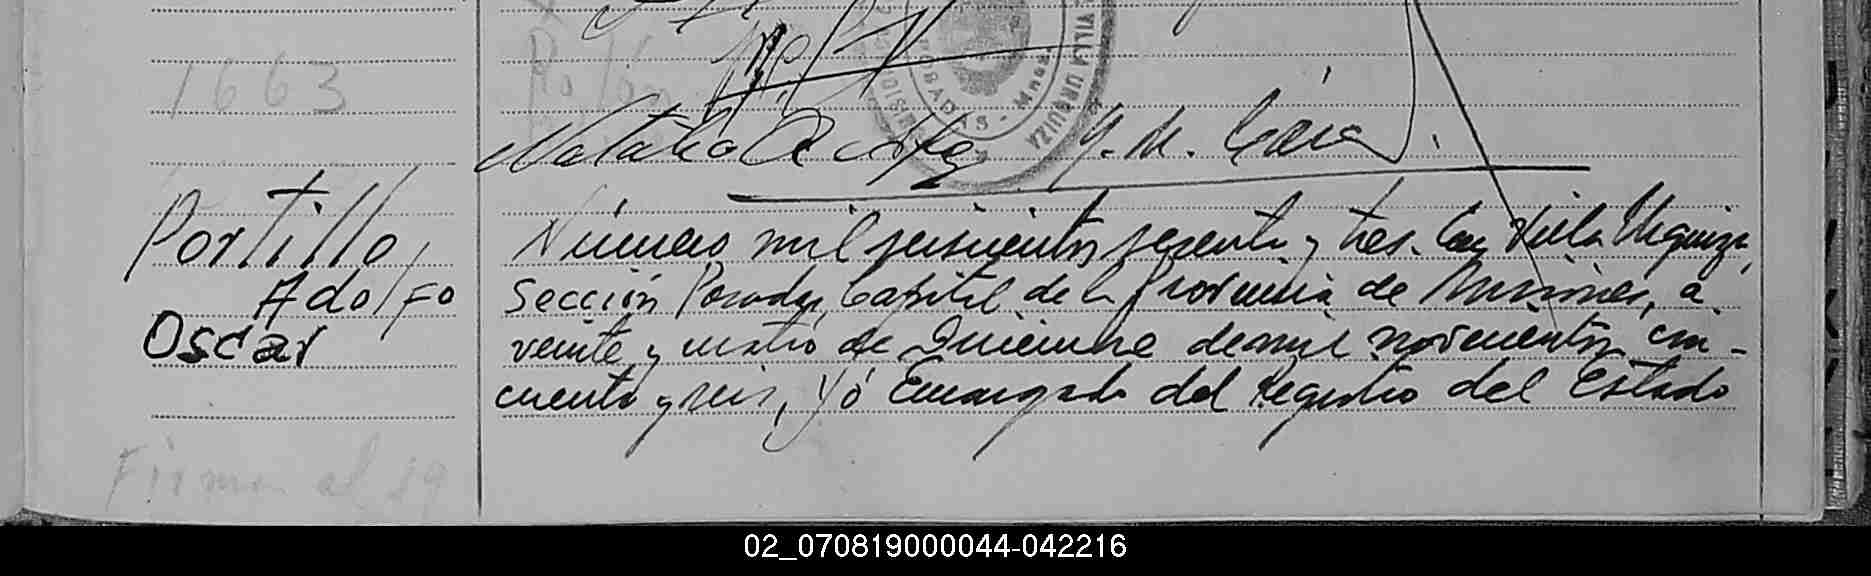 1663
Natalia
Portillo
Adolfo
Oscar
Número mil seiscientos sesenta y tres. En Villa Urquiza,
Sección Posadas, Capital de la Provincia de Misiones, a
veinte y cuatro de Diciembre de mil novecientos cin-
cuenta y seis, Yó Encargado del Registro del Estado
Firman al 29
VILLA URQUIZA
POSADAS - Mnes.
02_070819000044-042216